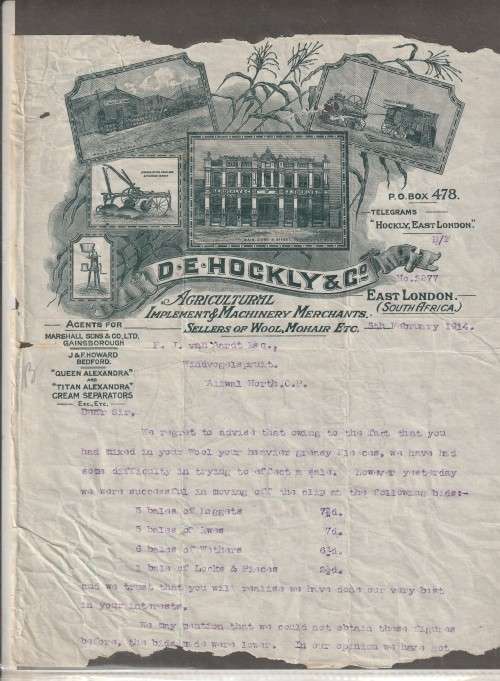 P.O. BOX 478.
TELEGRAMS
"HOCKLY, EAST LONDON."
D. E. HOCKLY & CO
No. 2277
AGRICULTURAL
IMPLEMENT & MACHINERY MERCHANTS.
SELLERS OF WOOL, MOHAIR ETC.
EAST LONDON.
(SOUTH AFRICA.)
5th February 1914.
AGENTS FOR
MARSHALL SONS & CO, LTD,
GAINSBOROUGH
J & F. HOWARD
BEDFORD.
"QUEEN ALEXANDRA"
AND
"TITAN ALEXANDRA"
CREAM SEPARATORS
ETC, ETC.
Esq.,
Windvogelspruit.
Aliwal North, C.P.
Dear Sir,
We regret to advise that owing to the fact that you
had mixed in your Wool your heavier greasy fleeces, we have had
some difficulty in trying to effect a sale. However yesterday
we were successful in moving off the clip at the following bids:-
5 bales of Hoggets
5 bales of Ewes 7d.
6 bales of Wethers
1 bale of Locks & Pieces
and we trust that you will realise we have done our very best
in your interests.
We may mention that we could not obtain these figures
before, the bids made were lower. In our opinion we have got